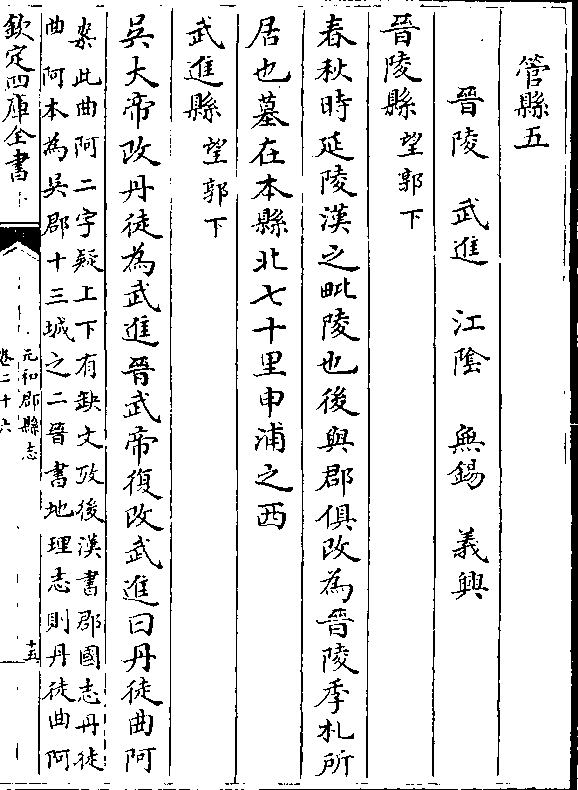 管縣五
晉陵　武進　江陰　無錫　義興
晉陵縣望郭下
春秋時延陵漢之毗陵也後與郡俱改為晉陵季札所
居也墓在本縣北七十里申浦之西
武進縣望郭下
吳大帝改丹徒為武進晉武帝復改武進曰丹徒曲阿
案此曲阿二字疑上下有缺文攷後漢書郡國志丹徒
曲阿本為吳郡十三城之二晉書地理志則丹徒曲阿
欽定四庫全書
元和郡縣志
卷二十六
十五